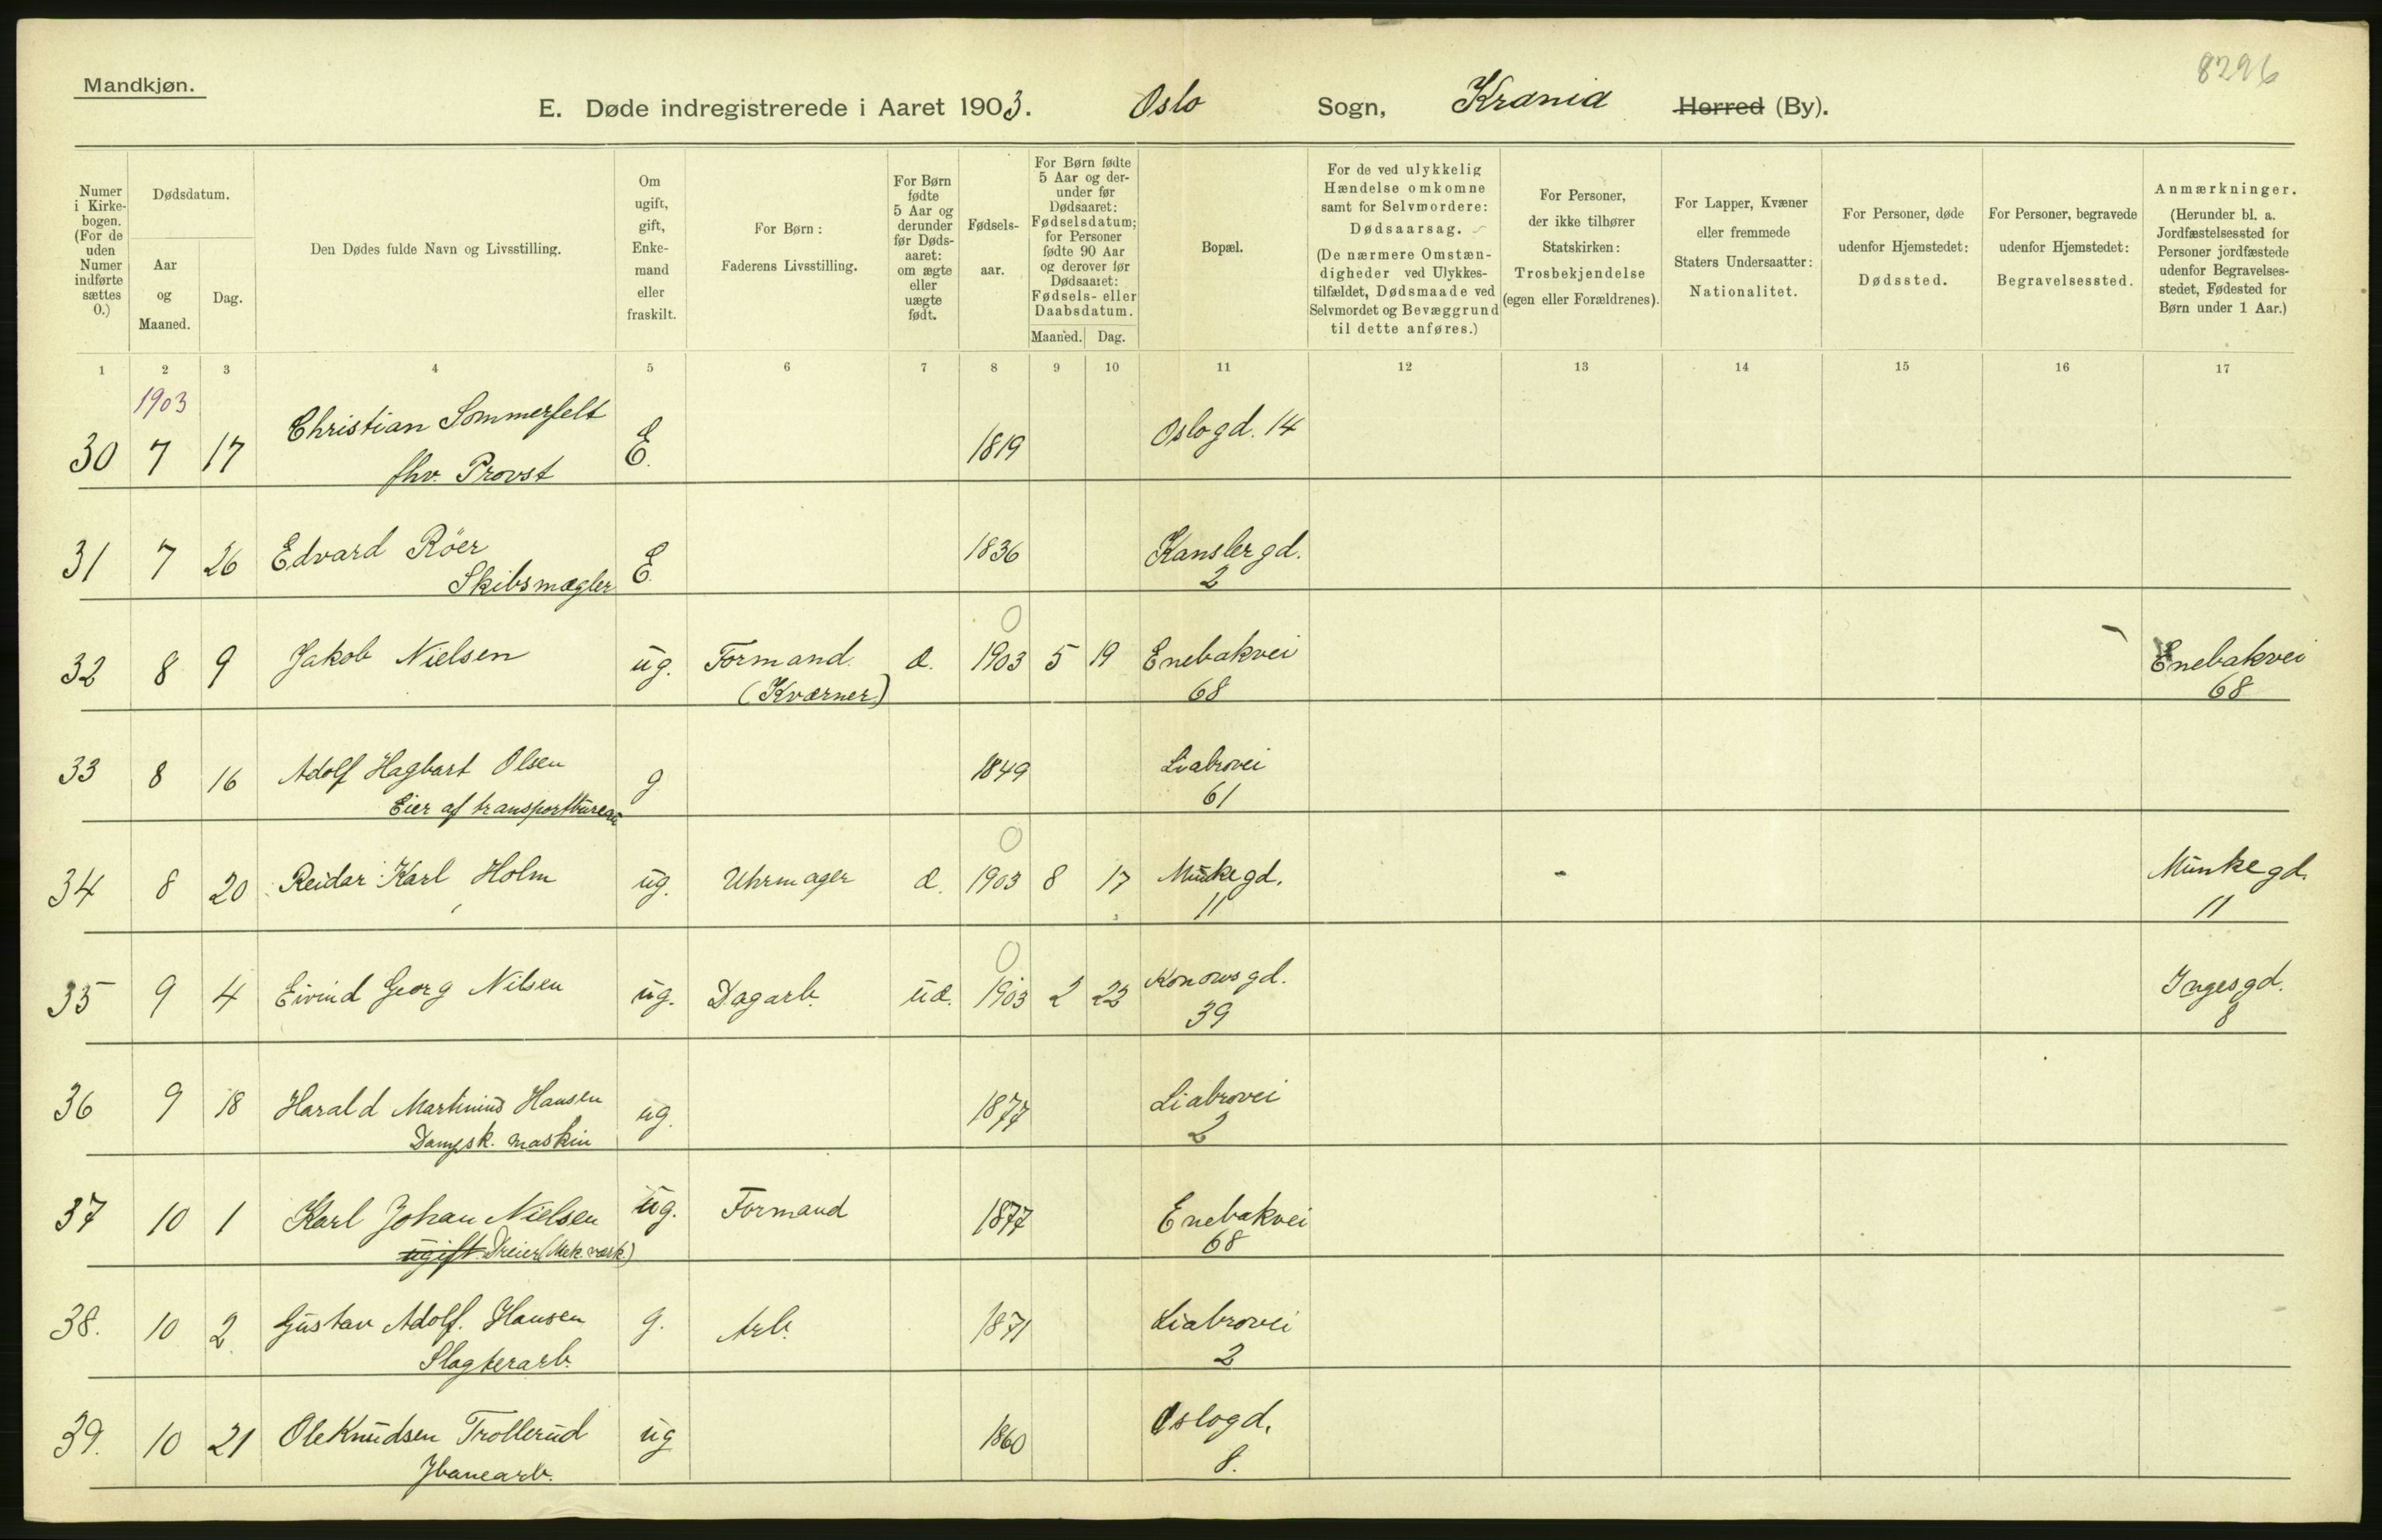 8296
Mandkjøn.
E. Døde indregistrerede i Aaret 1903. Oslo Sogn, Krania Herred (By).
Numer i Kirkebogen. (For de uden Numer indførte sættes 0.)
Dødsdatum.
Aar og Maaned.
Dag.
Den Dødes fulde Navn og Livsstilling.
Om ugift, gift, Enkemand eller fraskilt.
For Børn: Faderens Livsstilling.
For Børn fødte 5 Aar og derunder før Dødsaaret: om ægte eller uægte født.
Fødselsaar.
For Børn fødte 5 Aar og derunder før Dødsaaret: Fødselsdatum; for Personer fødte 90 Aar og derover før Dødsaaret: Fødsels- eller Daabsdatum.
Maaned. Dag.
Bopæl.
For de ved ulykkelig Hændelse omkomne samt for Selvmordere: Dødsaarsag.
(De nærmere Omstændigheder ved Ulykkestilfældet, Dødsmaade ved Selvmordet og Bevæggrund til dette anføres.)
For Personer, der ikke tilhører Statskirken: Trosbekjendelse (egen eller Forældrenes).
For Lapper, Kvæner eller fremmede Staters Undersaatter: Nationalitet.
For Personer, døde udenfor Hjemstedet: Dødssted.
For Personer, begravede udenfor Hjemstedet: Begravelsessted.
Anmærkninger.
(Herunder bl. a. Jordfæstelsessted for Personer jordfæstede udenfor Begravelsesstedet, Fødested for Børn under 1 Aar.)
1 2 3 4 5 6 7 8 9 10 11 12 13 14 15 16 17
1903
30 7 17 Christian Sommerfelt E. 1819 Oslogd. 14
fhv. Provst
31 7 26 Edvard Röer E. 1836 Kanslergd.
Skibsmægler 2
32 8 9 Jakob Nielsen ug. Formand. æ. 1903 5 19 Enebakvei Enebakvei
(Kværner) 68 68
33 8 16 Adolf Hagbart Olsen g 1849 Liabrovei
Eier af transportbureau 61
34 8 20 Reidar Karl Holm ug. Uhrmager æ. 1903 8 17 Munkegd. Munkegd.
11 11
35 9 4 Eivind Georg Nilsen ug. Dagarb. uæ. 1903 2 23 Konowsgd. Ingesgd.
39 8
36 9 18 Harald Martinius Hansen ug. 1877 Liabrovei
Dampsk. maskin 2
37 10 1 Karl Johan Nielsen ug. Formand 1877 Enebakvei
ugift Dreier (Mek. værk.) 68
38. 10 2 Gustav Adolf. Hansen g. Arb. 1871 Liabrovei
Slagterarb. 2
39. 10 21 Ole Knudsen Trollerud ug 1860 Oslogd.
Jbanearb. 8.